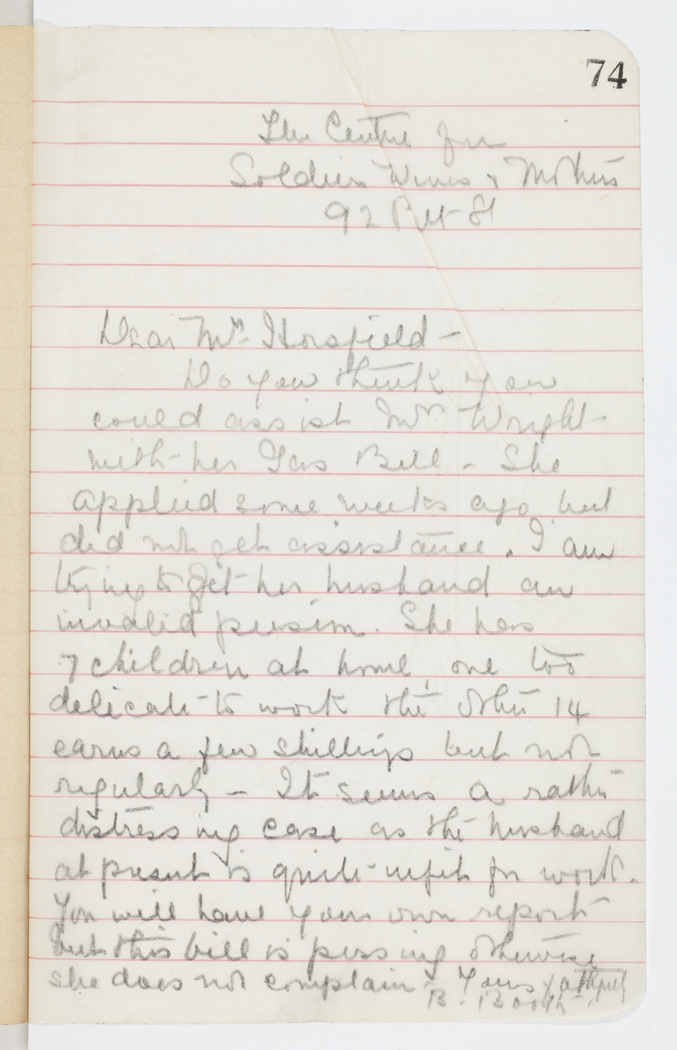 74
The Centre for
Soldiers Wives & Mothers
92 Pitt St
Dear Mrs Horsfield -
Do you think you
could assist Mrs Wright
with her Gas Bill - She
applied some weeks ago but
did not get assistance. I am
trying to get her husband an
invalid pension. She has
7 children at home, one too
delicate to work the other 14
earns a few shillings but not
regularly - It seems a rather
distressing case as the husband
at present is quite unfit for work.
You will have your own report
but this bill is pressing otherwise
she does not complain - Yours
B. Booth